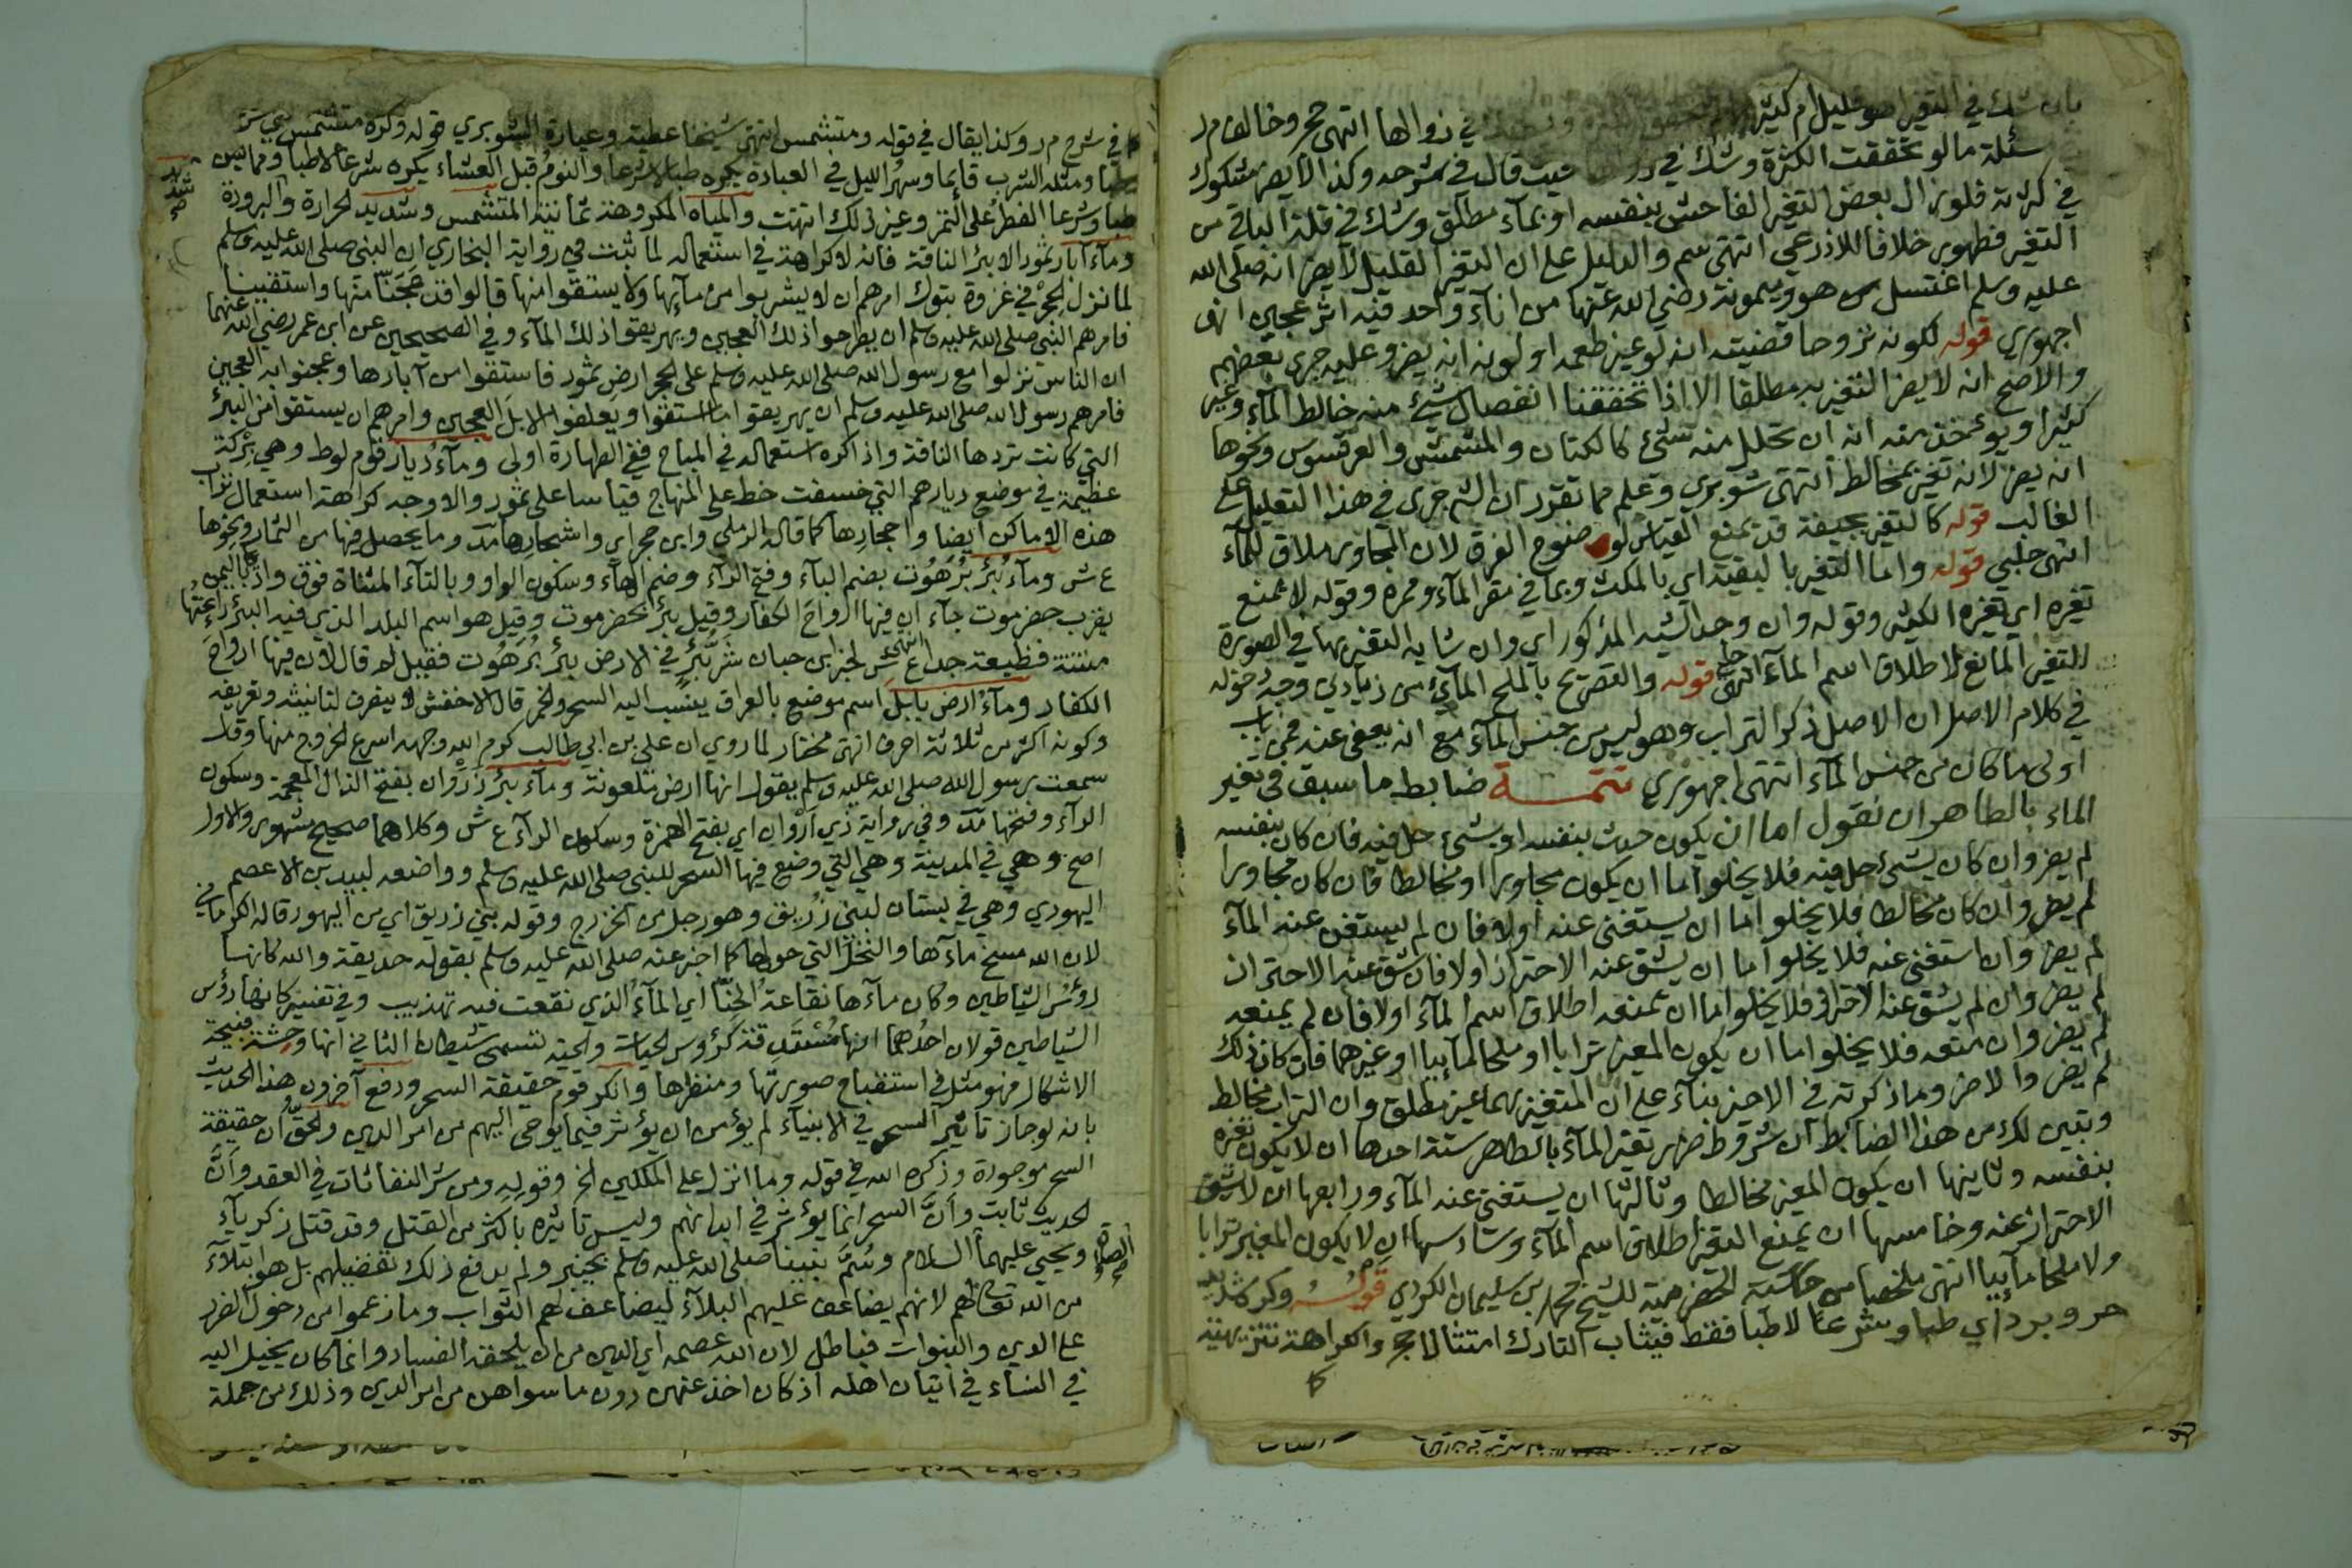 بان شك في التغير اهو قليل ام كثير في زوالها انتهى حجر وخالف م ر
سئلة مالو تحققت الكثرة وشك في حيث قال في شرحه وكذا لا يضر مشكوك
في كثرته فلو زال بعض التغير الفاحش بنفسه او بماء مطلق وشك في قلة الباقي من
التغير فطهور خلافا للاذرعي انتهى سم والدليل على ان التغير القليل لا يضر انه صلى الله
عليه وسلم اغتسل هو وميمونة رضي الله عنها من اناء واحد فيه اثر عجين انهى
اجهوري قوله لكونه تروحا قضيته انه لو غير طعمه او لونه انه يضر وعليه جرى بعضهم
والاصح انه لا يضر التغير به مطلقا الا اذا تحققنا انفصال شيء منه خالط الماء وغيره
كثيرا ويؤخذ منه انه ان تحلل منه شيء كالكتان والمشمش والعرقسوس ونحوها
انه يضر لانه تغير بمخالط انتهى شوبري وعلم مما تقرر ان الشرح جرى في هذا التعليل على
الغالب قوله كالتغير بجيفة قد يمنع القياس لوضوح الفرق لان المجاور ملاق للماء
انتهى حلبي قوله واما التغير بالبقية اي بالمكث وبما في مقر الماء وممره وقوله لا تمنع
تغيره اي تغيره الكثير وقوله وان وجد الشبه المذكور اي وان شابه التغير بها في الصورة
للتغير المانع لاطلاق اسم الماء انتهى قوله والتصريح بالملح المائي من زيادي وجه دخوله
في كلام الاصل ان الاصل ذكر التراب وهو ليس من جنس الماء مع انه يعفى عنه فمن باب
اولى ما كان من جنس الماء انتهى اجهوري تتمة ضابط ما سبق في تغير
الماء بالطاهر ان نقول اما ان يكون حدث بنفسه او بشيء حل فيه فان كان بنفسه
لم يضر وان كان بشيء حل فيه فلا يخلوا اما ان يكون مجاورا او مخالطا فان كان مجاورا
لم يضر وان كان مخالطا فلا يخلوا اما ان يستغنى عنه اولا فان لم يستغن عنه الماء
لم يضر وان استغنى عنه فلا يخلوا اما ان يشق عنه الاحتراز اولا فان شق عنه الاحتراز
لم يضر وان لم يشق عنه الاحتراز فلا يخلوا اما ان تمنعه اطلاق اسم الماء اولا فان لم يمنعه
لم يضر وان منعه فلا يخلوا اما ان يكون المغير ترابا او ملحا مائيا او غيرهما فان كان ذلك
لم يضر والا ضر وما ذكرته في الاخير بناء على ان المتغير بهما غير مطلق وان التراب مخالط
وتبين لك من هذا الضابط ان شروط ضرر تغير الماء بالطاهر ستة احدها ان لا يكون تغيره
بنفسه وثانيها ان يكون المغير مخالطا وثالثها ان يستغنى عنه الماء ورابعها ان لا يشق
الاحتراز عنه وخامسها ان يمنع التغير اطلاق اسم الماء وسادسها ان لا يكون المغير ترابا
ولا ملحا مائيا انتهى ملخصا من حاشية الحضرمية للشيخ محمد بن سليمان الكردي قوله وكره شديد
حر وبرد اي طبا وشرعا لا طبا فقط فيثاب التارك امتثالا حجر والكراهة تنزيهية
كا
كا في شرح م ر وكذا يقال في قوله ومتشمس انتهى شيخنا عطية وعبارة الشوبري قوله وكره متشمس
طبا ومثله الشرب قايما وسهر الليل في العبادة يكره طبا لا شرعا والنوم قبل العشاء يكره شرعا لا طبا ومما يس
طبا وشرعا الفطر على التمر وغير ذلك انتهت والمياه المكروهة ثمانية المتشمس وشديد الحرارة والبرودة
شديد
وماء آبار ثمود الا بئر الناقة فانه لا كراهة في استعماله لما ثبت في رواية البخاري ان النبي صلى الله عليه وسلم
لما نزل الحجر في غزوة تبوك امرهم ان لا يشربوا من مائها ولا يستقوا منها قالوا قد عجنّا منها واستقينا
فامرهم النبي صلى الله عليه وسلم ان يطرحوا ذلك العجين ويهريقوا ذلك الماء وفي الصحيحين عن ابن عمر رضي الله عنهما
ان الناس نزلوا مع رسول الله صلى الله عليه وسلم على الحجر ارض ثمود فاستقوا من آبارها وعجنوا به العجين
فامرهم رسول الله صلى الله عليه وسلم ان يهريقوا ما استقوا ويعلفوا الابل العجين وامرهم ان يستقوا من البئر
التي كانت تردها الناقة واذا كره استعماله في المباح ففي الطهارة اولى وماء ديار قوم لوط وهي بركة
عظيمة في موضع ديارهم التي خسفت خط على المنهاج قياسا على ثمود والاوجه كراهة استعمال تراب
هذه الاماكن ايضا واحجارها كما قال الرملي وابن حجر اي واشجارها مد وما يحصل فيها من الثمار ونحوها
ع ش وماء بئر برهوت بضم الباء وفتح الراء وضم الهاء وسكون الواو وبالتاء المثناة فوق واد باليمن
بقرب حضرموت جاء ان فيها ارواح الكفار وقيل بئر بحضرموت وقيل هو اسم البلد الذي فيه البئر رائحتها
منتنة فظيعة جدا انتهى ع ش لخبر ابن حبان شر بئر في الارض بئر برهوت فقيل له قال لان فيها ارواح
الكفار وماء ارض بابل اسم موضع بالعراق ينسب اليه السحر والخمر قال الاخفش لا ينصرف لتانيثه وتعريفه
وكونه اكثر من ثلاثة احرف انتهى مختار لما روي ان علي بن ابي طالب كرم الله وجهه اسرع الخروج منها وقال
سمعت رسول الله صلى الله عليه وسلم يقول انها ارض ملعونة وماء بئر ذروان بفتح الذال المعجمة وسكون
الراء وفتحها مد وفي رواية ذي اروان اي بفتح الهمزة وسكون الراء ع ش وكلاهما صحيح مشهور والاول
اصح وهي في المدينة وهي التي وضع فيها السحر للنبي صلى الله عليه وسلم وواضعه لبيد بن الاعصم
اليهودي وهي في بستان لبني زريق وهو رجل من الخزرج وقوله بني زريق اي من اليهود قاله الكرماني
لان الله مسخ ماءها والنخل التي حولها كما اخبر عنه صلى الله عليه وسلم بقوله حديقة والله كانها
رؤس الشياطين وكان ماءها نقاعة الحنا اي الماء الذي نقعت فيه تهذيب وفي تفسير كانها رؤس
الشياطين قولان احدهما انها رؤس الحيات والحية تسمى شيطان الثاني انها وحشة قبيحة
الاشكال فهو مثل في استقباح صورتها ومنظرها وانكر قوم حقيقة السحر ودفع آخرون هذا الحديث
بانه لو جاز تاثير السحر في الانبياء لم يؤمن ان يؤثر فيما يوحى اليهم من امر الدين والحق ان حقيقة
السحر موجودة وذكره الله في قوله وما انزل على الملكين الخ وقوله ومن شر النفاثات في العقد وان
الحديث ثابت وان السحر انما يؤثر في ابدانهم وليس تاثيره باكثر من القتل وقد قتل زكرياء
ويحيى عليهما الصلاة السلام وسم نبينا صلى الله عليه وسلم بخيبر ولم يدفع ذلك تفضيلهم بل هو ابتلاء
من الله تعالى لهم لانهم يضاعف عليهم البلاء ليضاعف لهم الثواب وما زعموا من دخول الضرر
على الدين والنبوات فباطل لان الله عصمه اي الدين من ان يلحقه الفساد وانما كان يخيل اليه
في النساء في اتيان اهله اذ كان اخذ عنهن دون ما سواهن من امر الدين وذلك من جملة